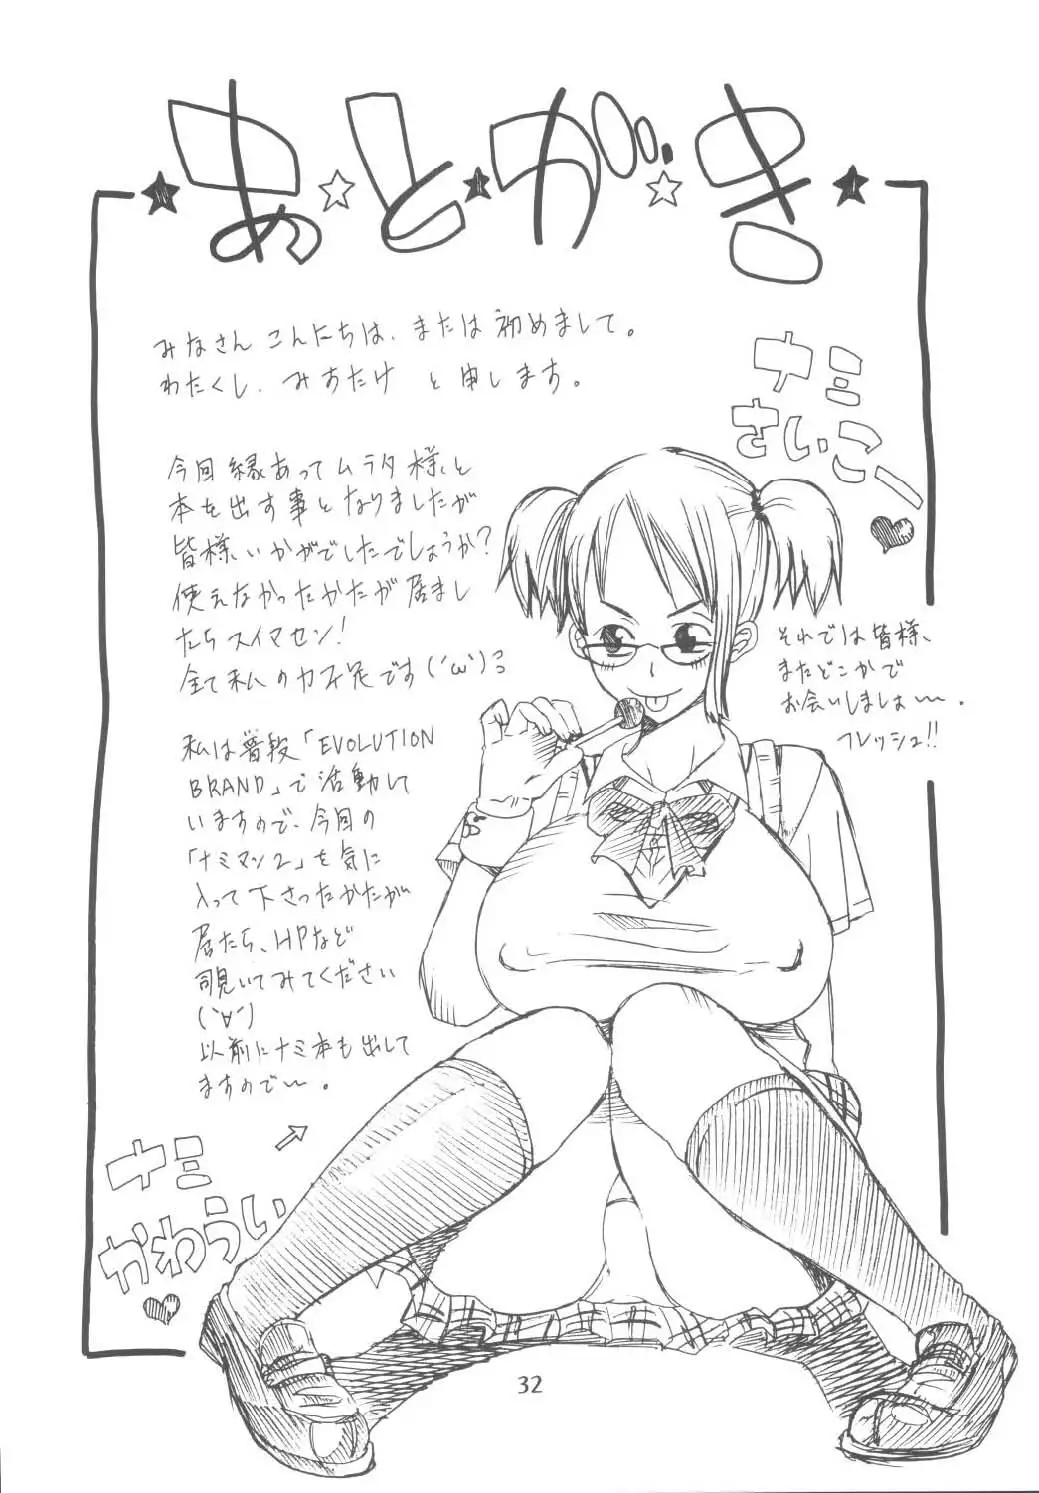 あとがき
みなさん こんにちは、または初めまして。
わたくし、みすたけ と申します。
ナミ
さいこー
今回縁あってムラタ様と
本を出す事となりましたが
皆様いかがでしたでしょうか?
使えなかったかたが居まし
たらスイマセン!
全て私の力不足です(´ω`)
私は普段「EVOLUTION
BRAND」で活動して
いますので、今回の
「ナミマン2」を気に
入って下さったかたが
居たら、HPなど
覗いてみてください
(`∀´)
以前にナミ本も出して
ますので〜。
それでは皆様、
またどこかで
お会いしましょ〜〜。
フレッシュ!!
ナミ
かわうい
32